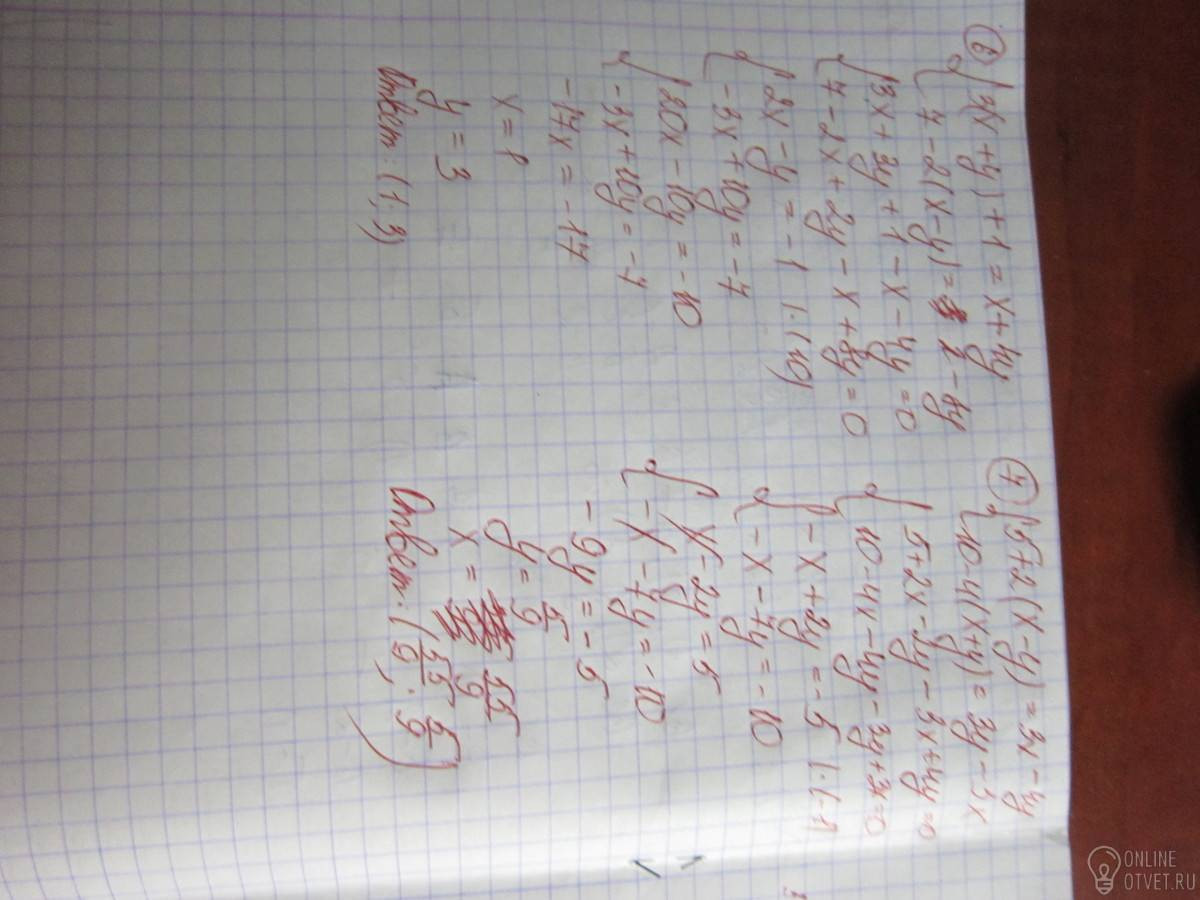 6 { 3(x+y)+1=x+4y
7-2(x-y)=
{ 3x+3y+1-x-4y=0
7-2x+2y-x+8y=0
{ 2x-y=-1 |·(10)
-3x+10y=-7
{ 20x-10y=-10
-3x+10y=-7
-17x=-17
x=1
y=3
Ответ: (1, 3)
7 { 5+2(x-y)=3x-4y
10-4(x+y)=3y-3x
5+2x-2y-3x+4y=0
{ 10-4x-4y-3y+3x=0
{ -x+2y=-5 |·(-1)
-x-7y=-10
{ x-2y=5
-x-7y=-10
-9y=-5
y=5/9
x= 55/9
Ответ: (55/9; 5/9)
ONLINE
OTVET.RU